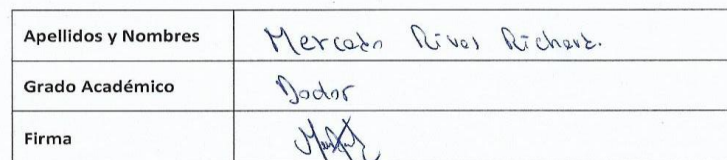 Apellidos y Nombres Mercado Rivas Richard.
Grado Académico Doctor
Firma